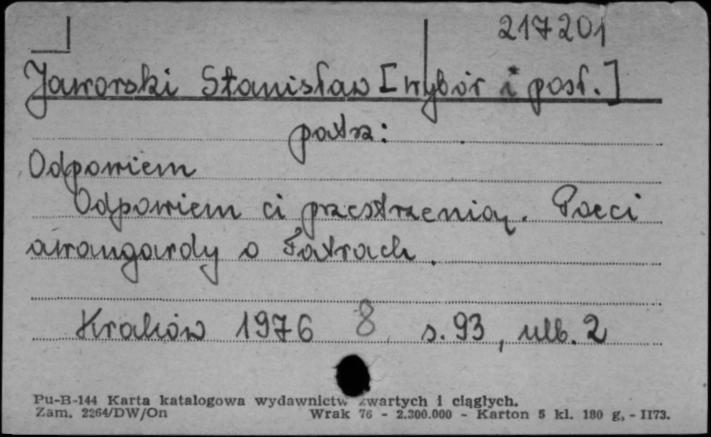 217201
Jaworski Stanisław [wybór i posł.]
patrz:
Odpowiem
Odpowiem ci przestrzenią. Poeci
awangardy o Tatrach.
Kraków 1976 8 s. 93, nlb. 2
Pu-B-144 Karta katalogowa wydawnictw zwartych i ciągłych.
Zam. 2264/DW/On Wrak 76 - 2.300.000 - Karton 5 kl. 180 g, - II73.